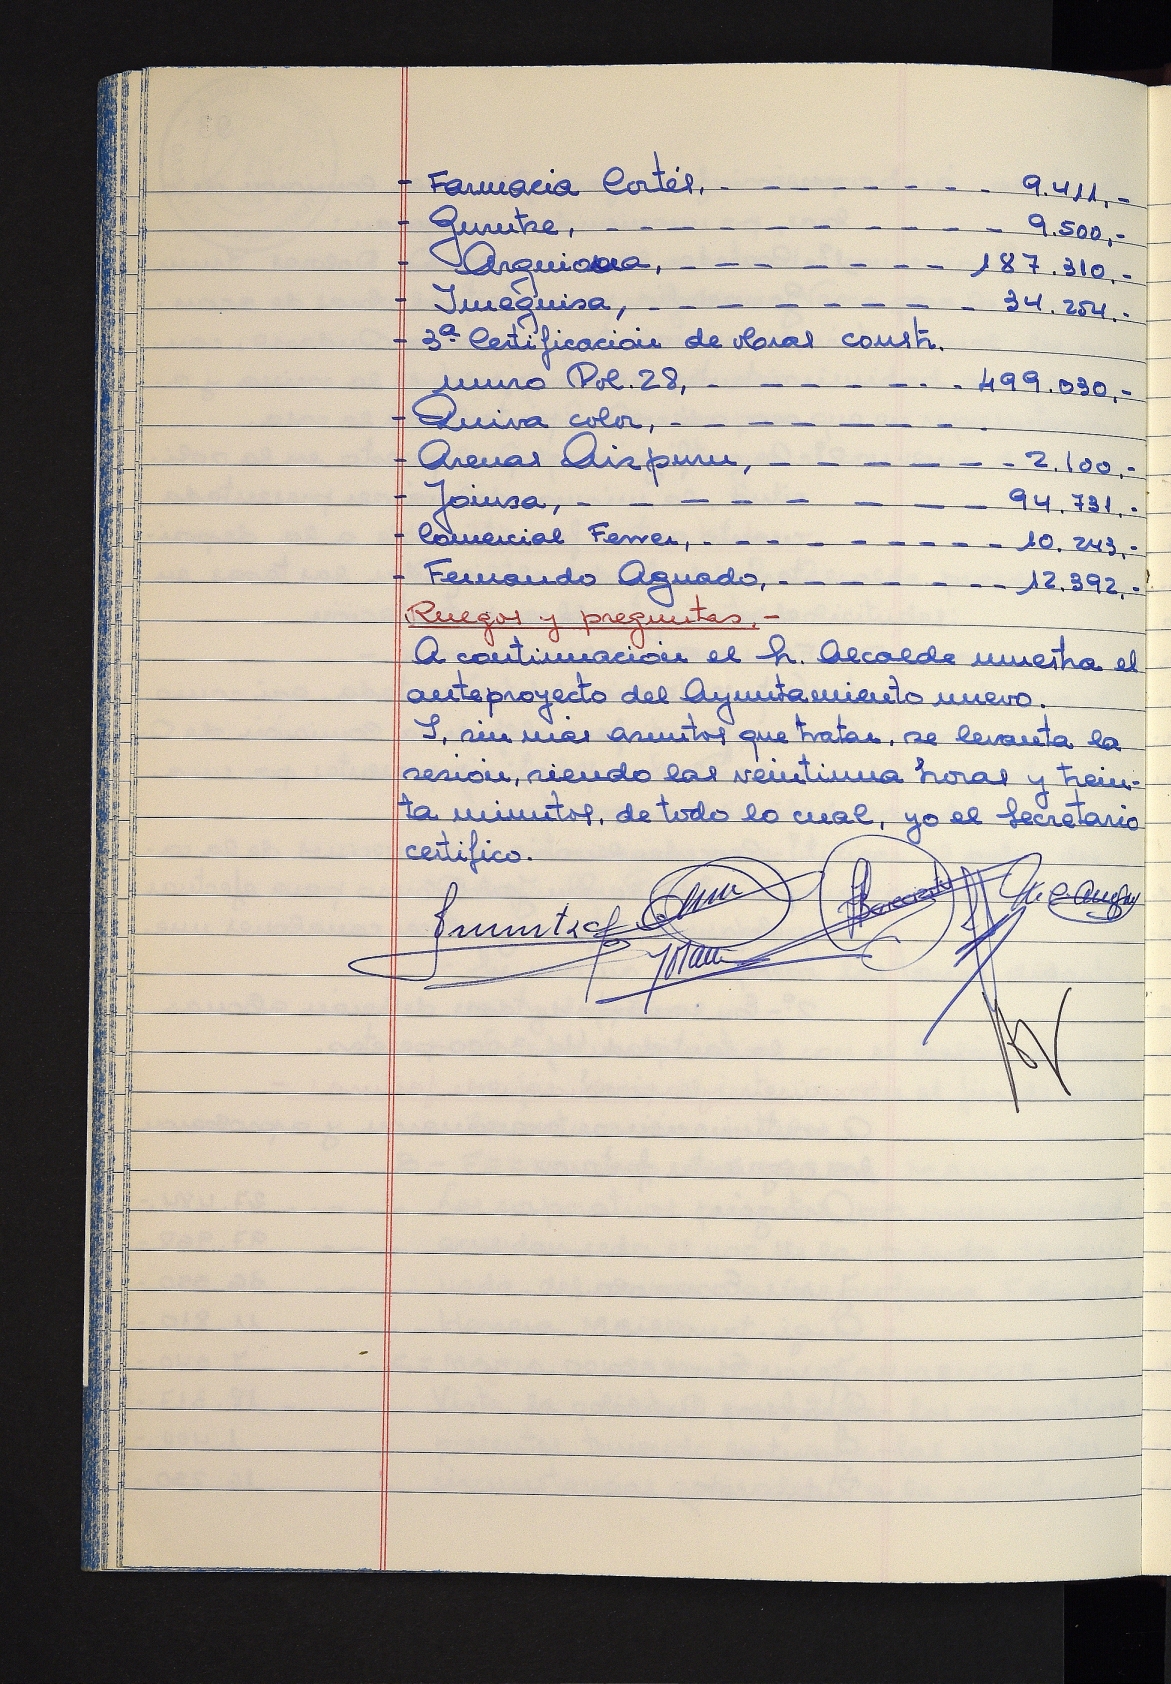 - Farmacia Cortés, - - - - - - - - 9.411,-
- Gurutze, - - - - - - - - - - - 9.500,-
- Arguiona, - - - - - - - - 187.310,-
- Imeguisa, - - - - - - - - - 34.254,-
- 3ª Certificación de obras constr.
muro Pol. 28, - - - - - - - - 499.030,-
- Quiva color, - - - - - - - - -
- Arenas Aizpuru, - - - - - - - 2.100,-
- Joinsa, - - - - - - - - - 94.731,-
- Comercial Ferrer, - - - - - - - - - 10.243,-
- Fernando Aguado, - - - - - - - - 12.392,-
Ruegos y preguntas.-
A continuación el Sr. Alcalde muestra el
anteproyecto del Ayuntamiento nuevo.
Y, sin más asuntos que tratar, se levanta la
sesión, siendo las veintiuna horas y trein-
ta minutos, de todo lo cual, yo el Secretario
certifico.